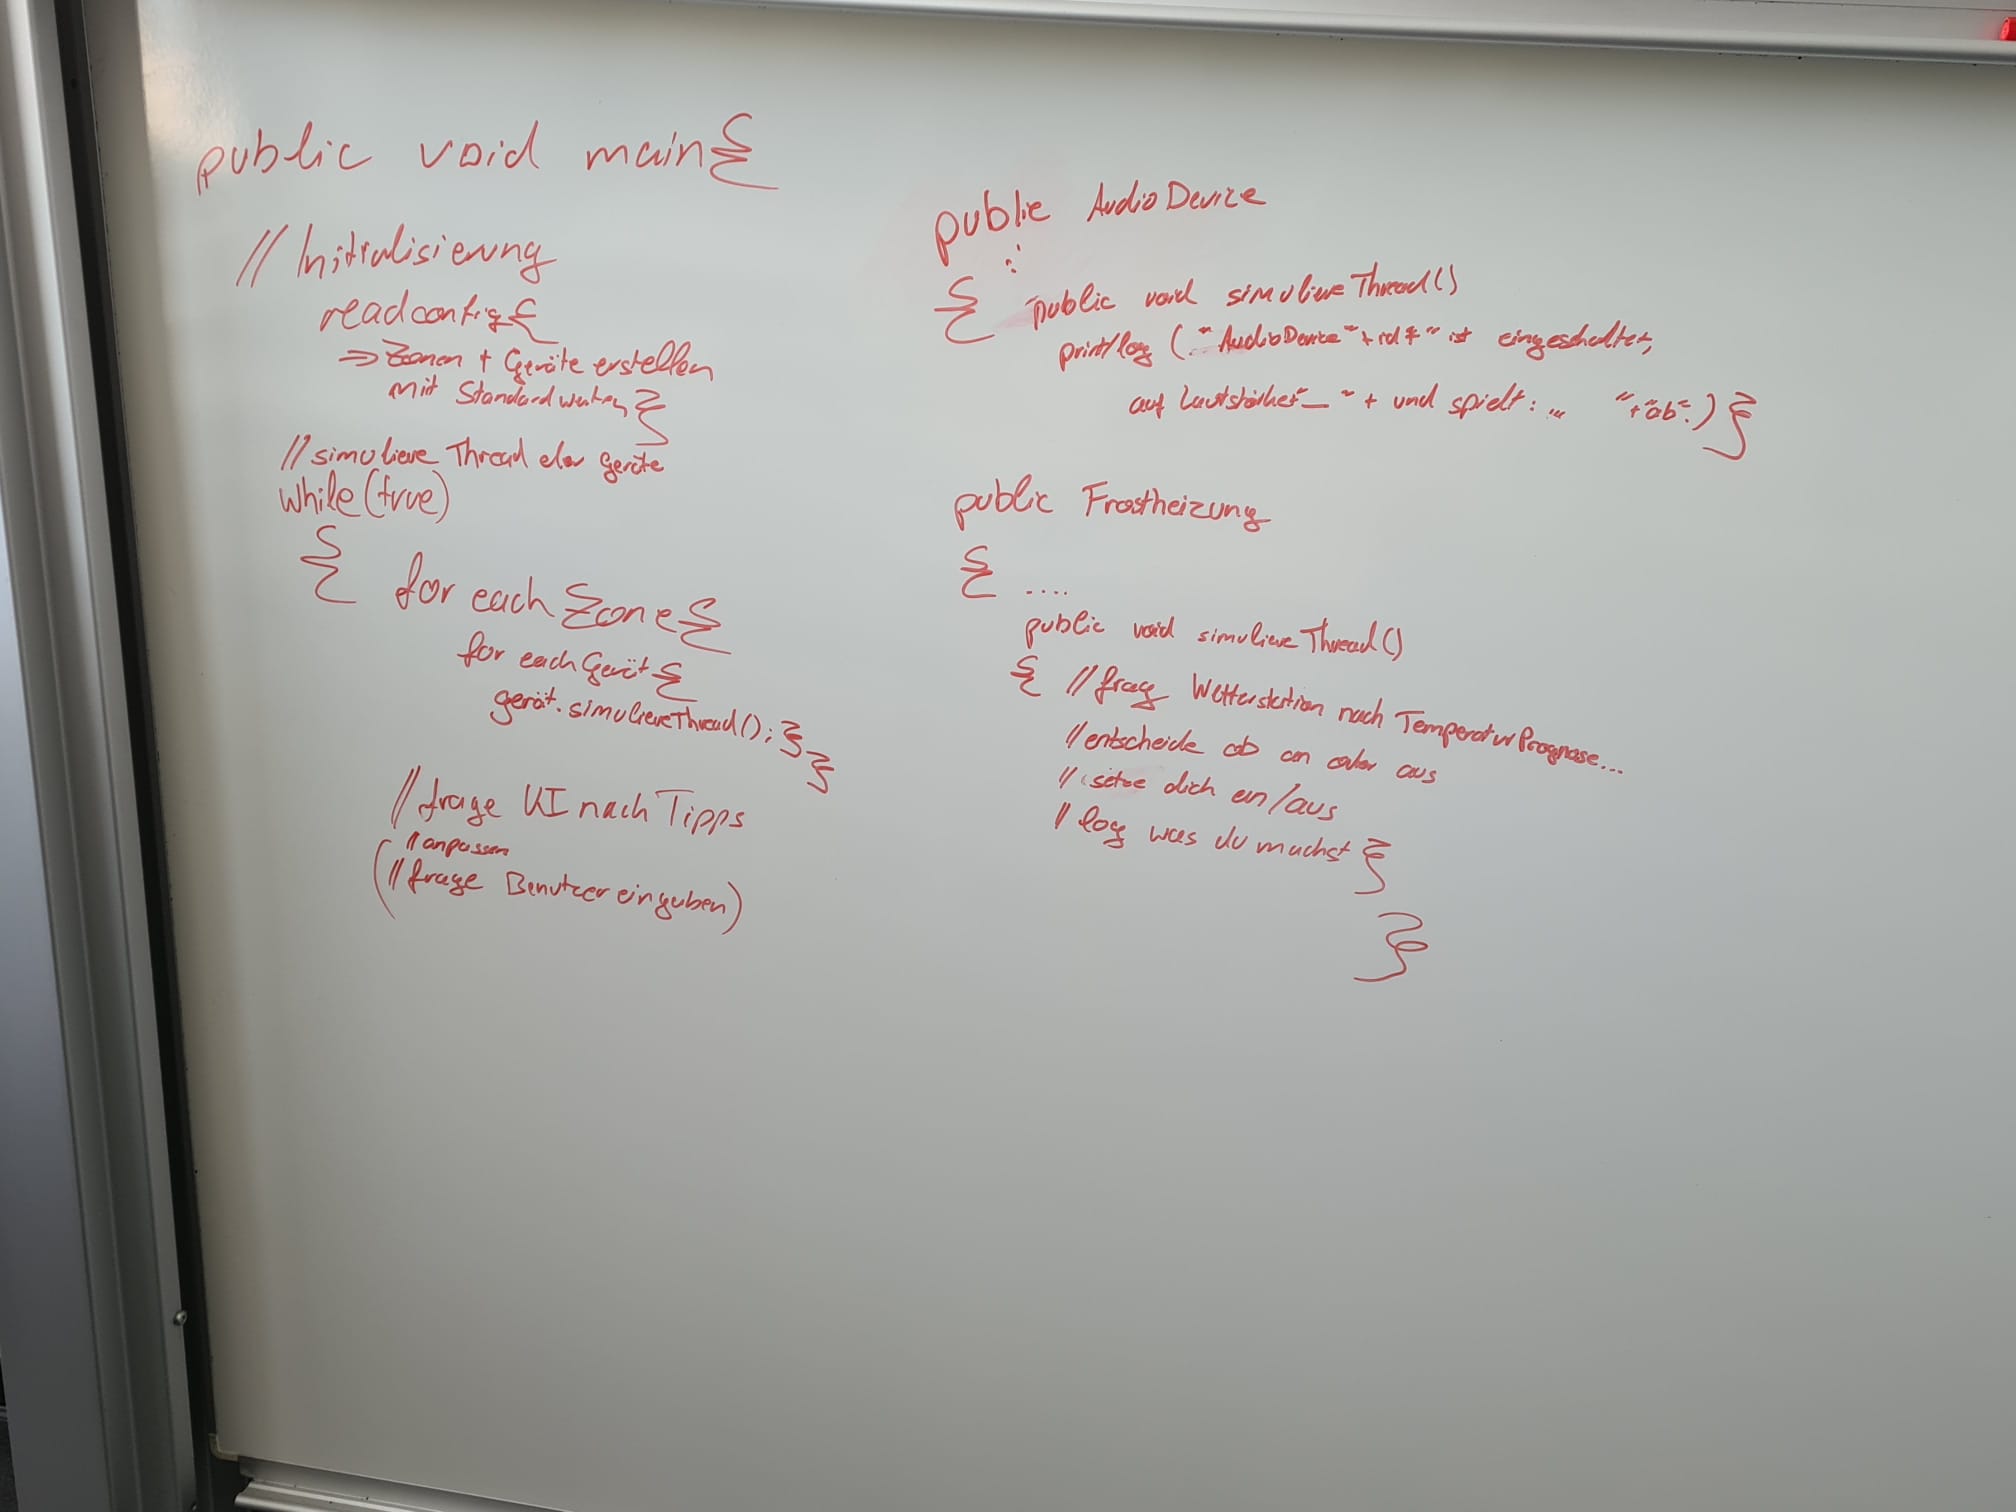 public void main{
// Initialisierung
readconfig{
=> Zonen + Geräte erstellen
mit Standardwerten}
// simuliere Thread der Geräte
while(true)
{ for each Zone{
for each Gerät{
gerät.simuliereThread();}}
// frage KI nach Tipps
// anpassen
(// frage Benutzereingaben)
public AudioDevice
:
{ public void simuliereThread()
print/log ("AudioDevice"+id+" ist eingeschaltet,
auf Lautstärke"_"+ und spielt: ... "+"ab".)}
public Frostheizung
{ ....
public void simuliereThread()
{ // frag Wetterstation nach TemperaturPrognose...
// entscheide ob an oder aus
// setze dich an/aus
// log was du machst }
}